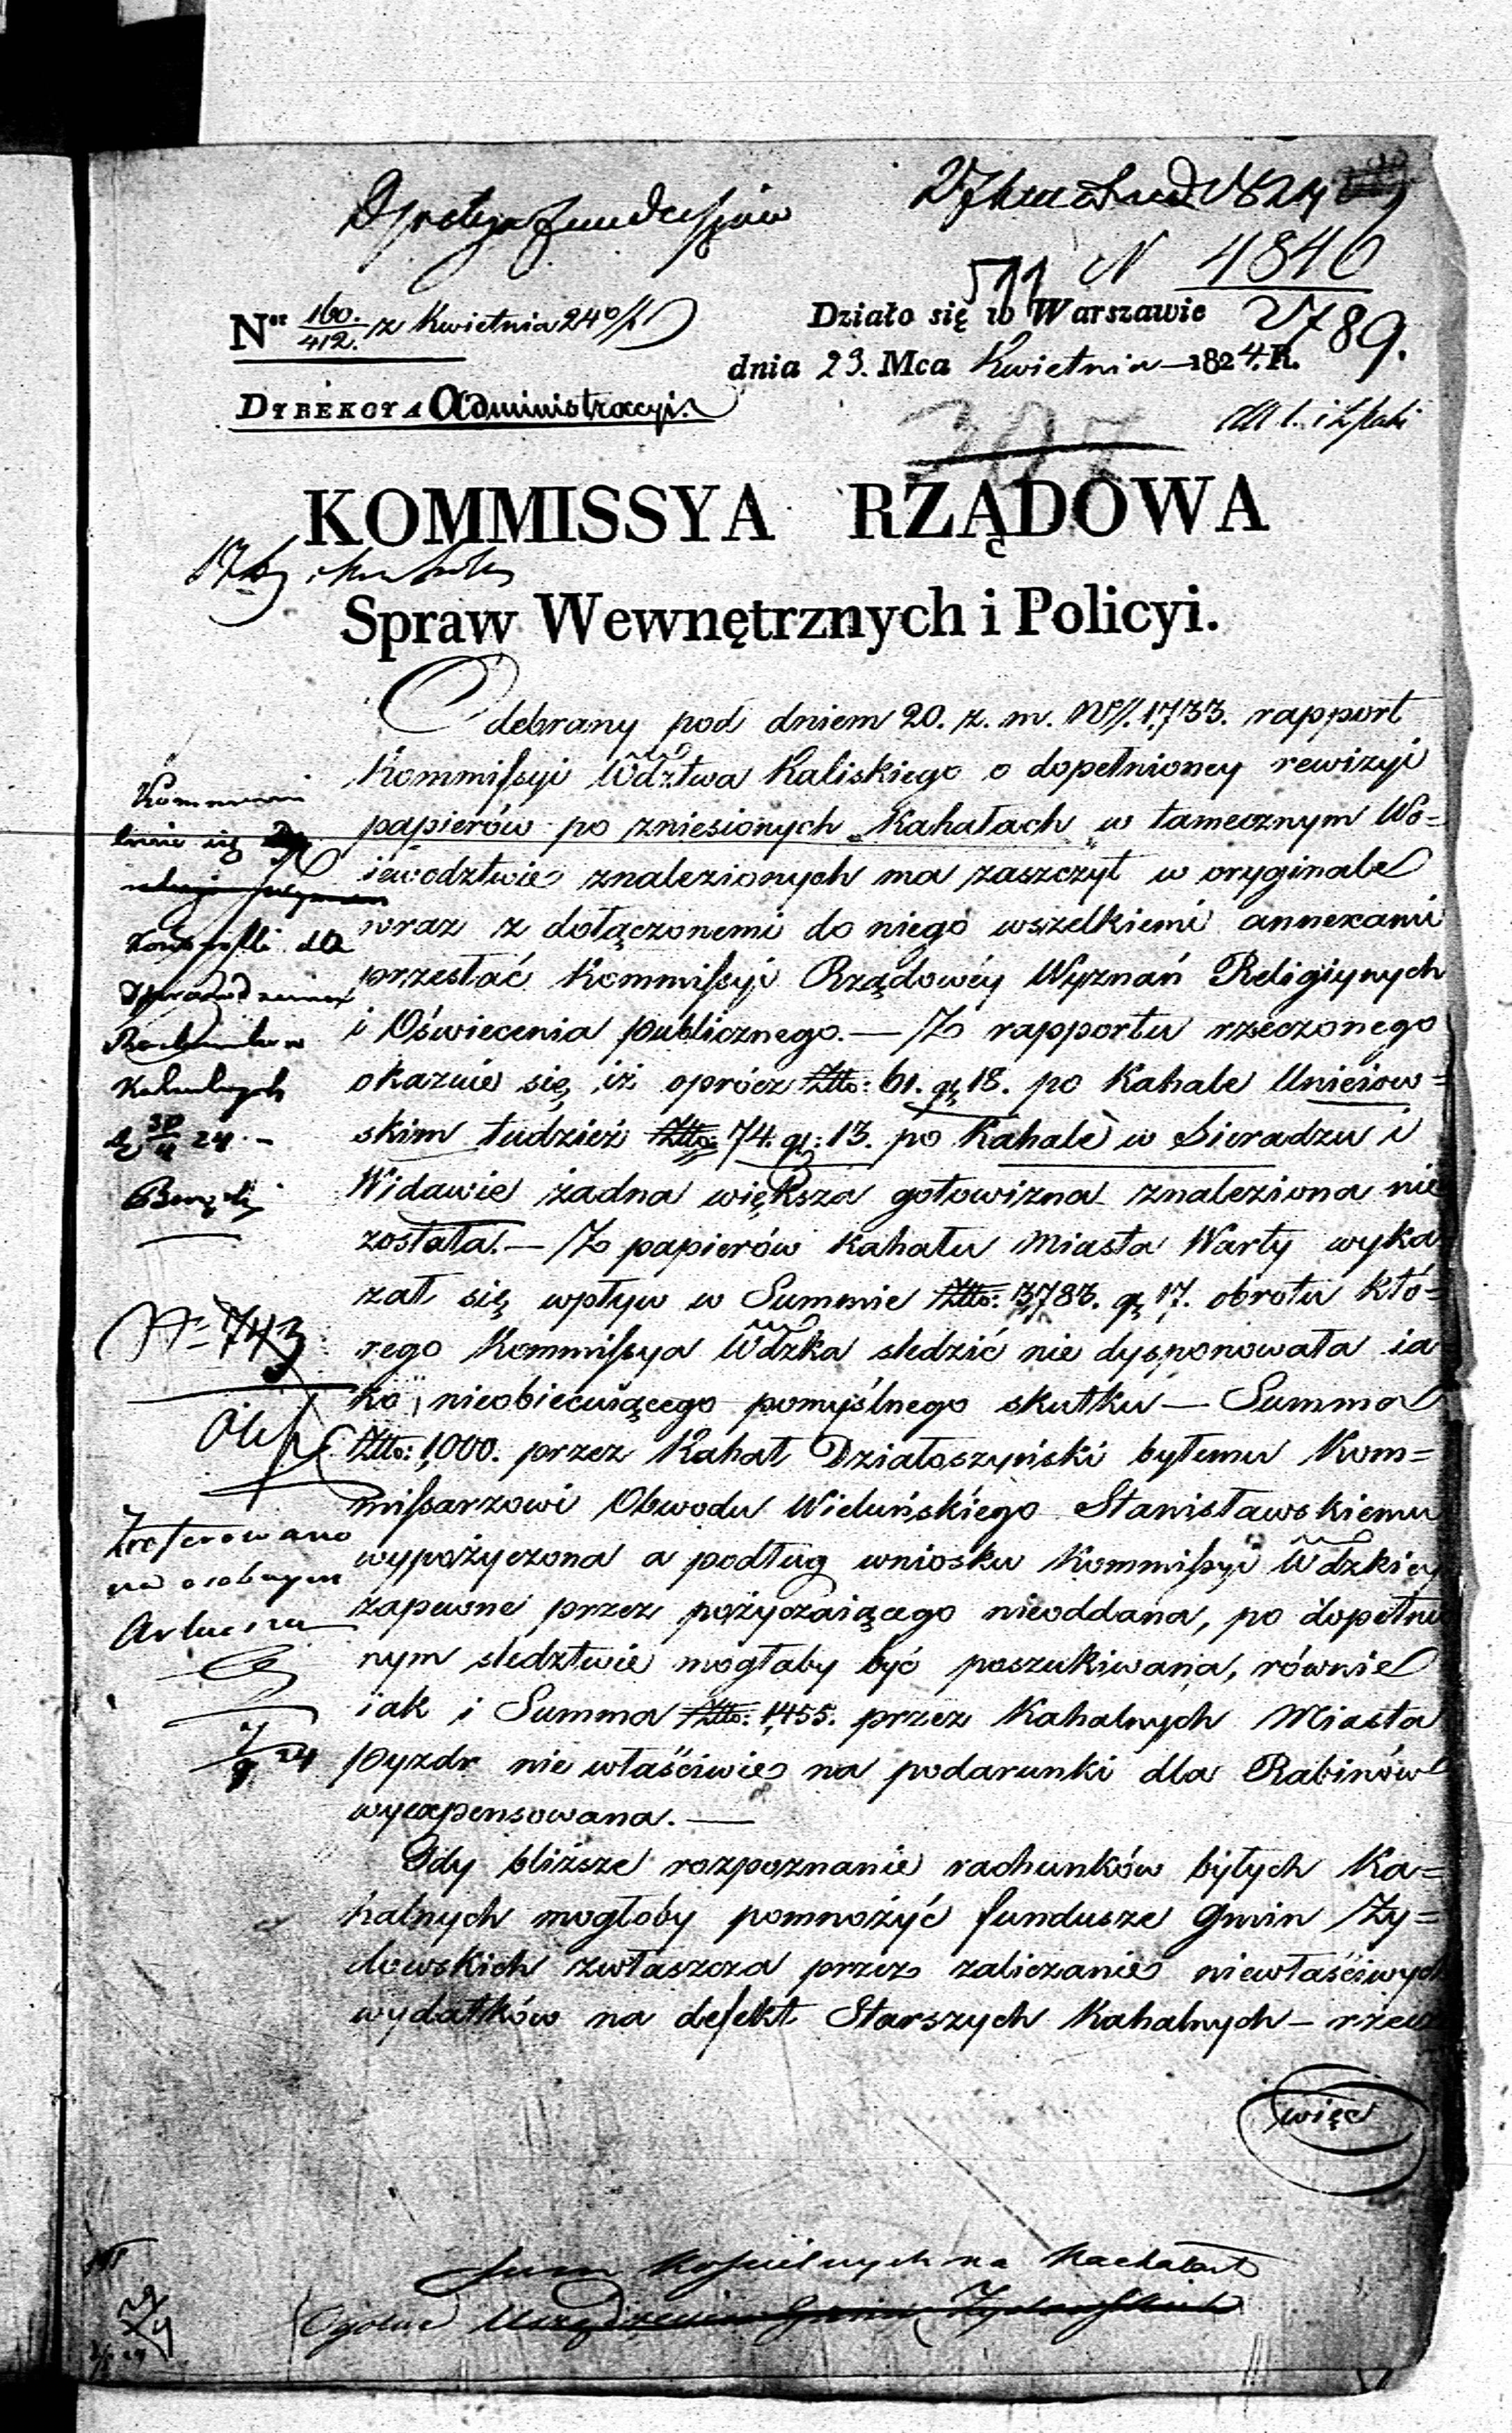 1824
N 4846
511
2789.
Ner 160./412. z Kwietnia 24
Działo się w Warszawie
dnia 23. Mca Kwietnia 1824. R.
DYREKCYA Administracyi.
KOMMISSYA RZĄDOWA
Spraw Wewnętrznych i Policyi.
Odebrany pod dniem 20. z. m. N 1,733. rapport
Kommissyi Wdztwa Kaliskiego o dopełnioney rewizyi
papierów po zniesionych Kahałach w tamecznym Wo=
iewodztwie znalezionych ma zaszczyt w oryginale
wraz z dołączonemi do niego wszelkiemi annexami
przesłać Kommissyi Rządowéy Wyznań Religiynych
i Oświecenia publicznego. — Z rapportu rzeczonego
okazuie się, iż oprócz Złto: 61. gr 18. po Kahale Unieiow=
skim tudzież Złto: 74. gr: 13. po Kahale w Sieradzu i
Widawie żadna większa gotowizna znaleziona nie
została. — Z papierów Kahału Miasta Warty wyka
zał się wpływ w Summie Złto: 3,783. gr 17. obrotu któ=
rego Kommissya Wdzka sledzić nie dysponowała ia
ko nieobiecuiącego pomyślnego skutku — Summa
Złto: 1,000. przez Kahał Działoszyński byłemu Kom=
missarzowi Obwodu Wieluńskiego Stanisławskiemu
wypożyczona a podług wniosku Kommissyi Wdzkiey
zapewne przez pożyczaiącego nieoddana, po dopełnio
nym sledztwie mogłaby być poszukiwana, równie
iak i Summa Złto: 1,455. przez Kahalnych Miasta
Pyzdr nie właściwie na podarunki dla Rabinów
wyexpensowana. —
Gdy bliższe rozpoznanie rachunków byłych Ka=
halnych mogłoby pomnożyć fundusze Gmin Ży=
dowskich zwłaszcza przez zaliczanie niewłaściwych
wydatków na defekt Starszych Kahalnych — rzecz
więc
No 743
na osobnym
Arkuszu
Summ Kościelnych na Kachałach
Ogolne Urządzenie Gmin Żydowskich